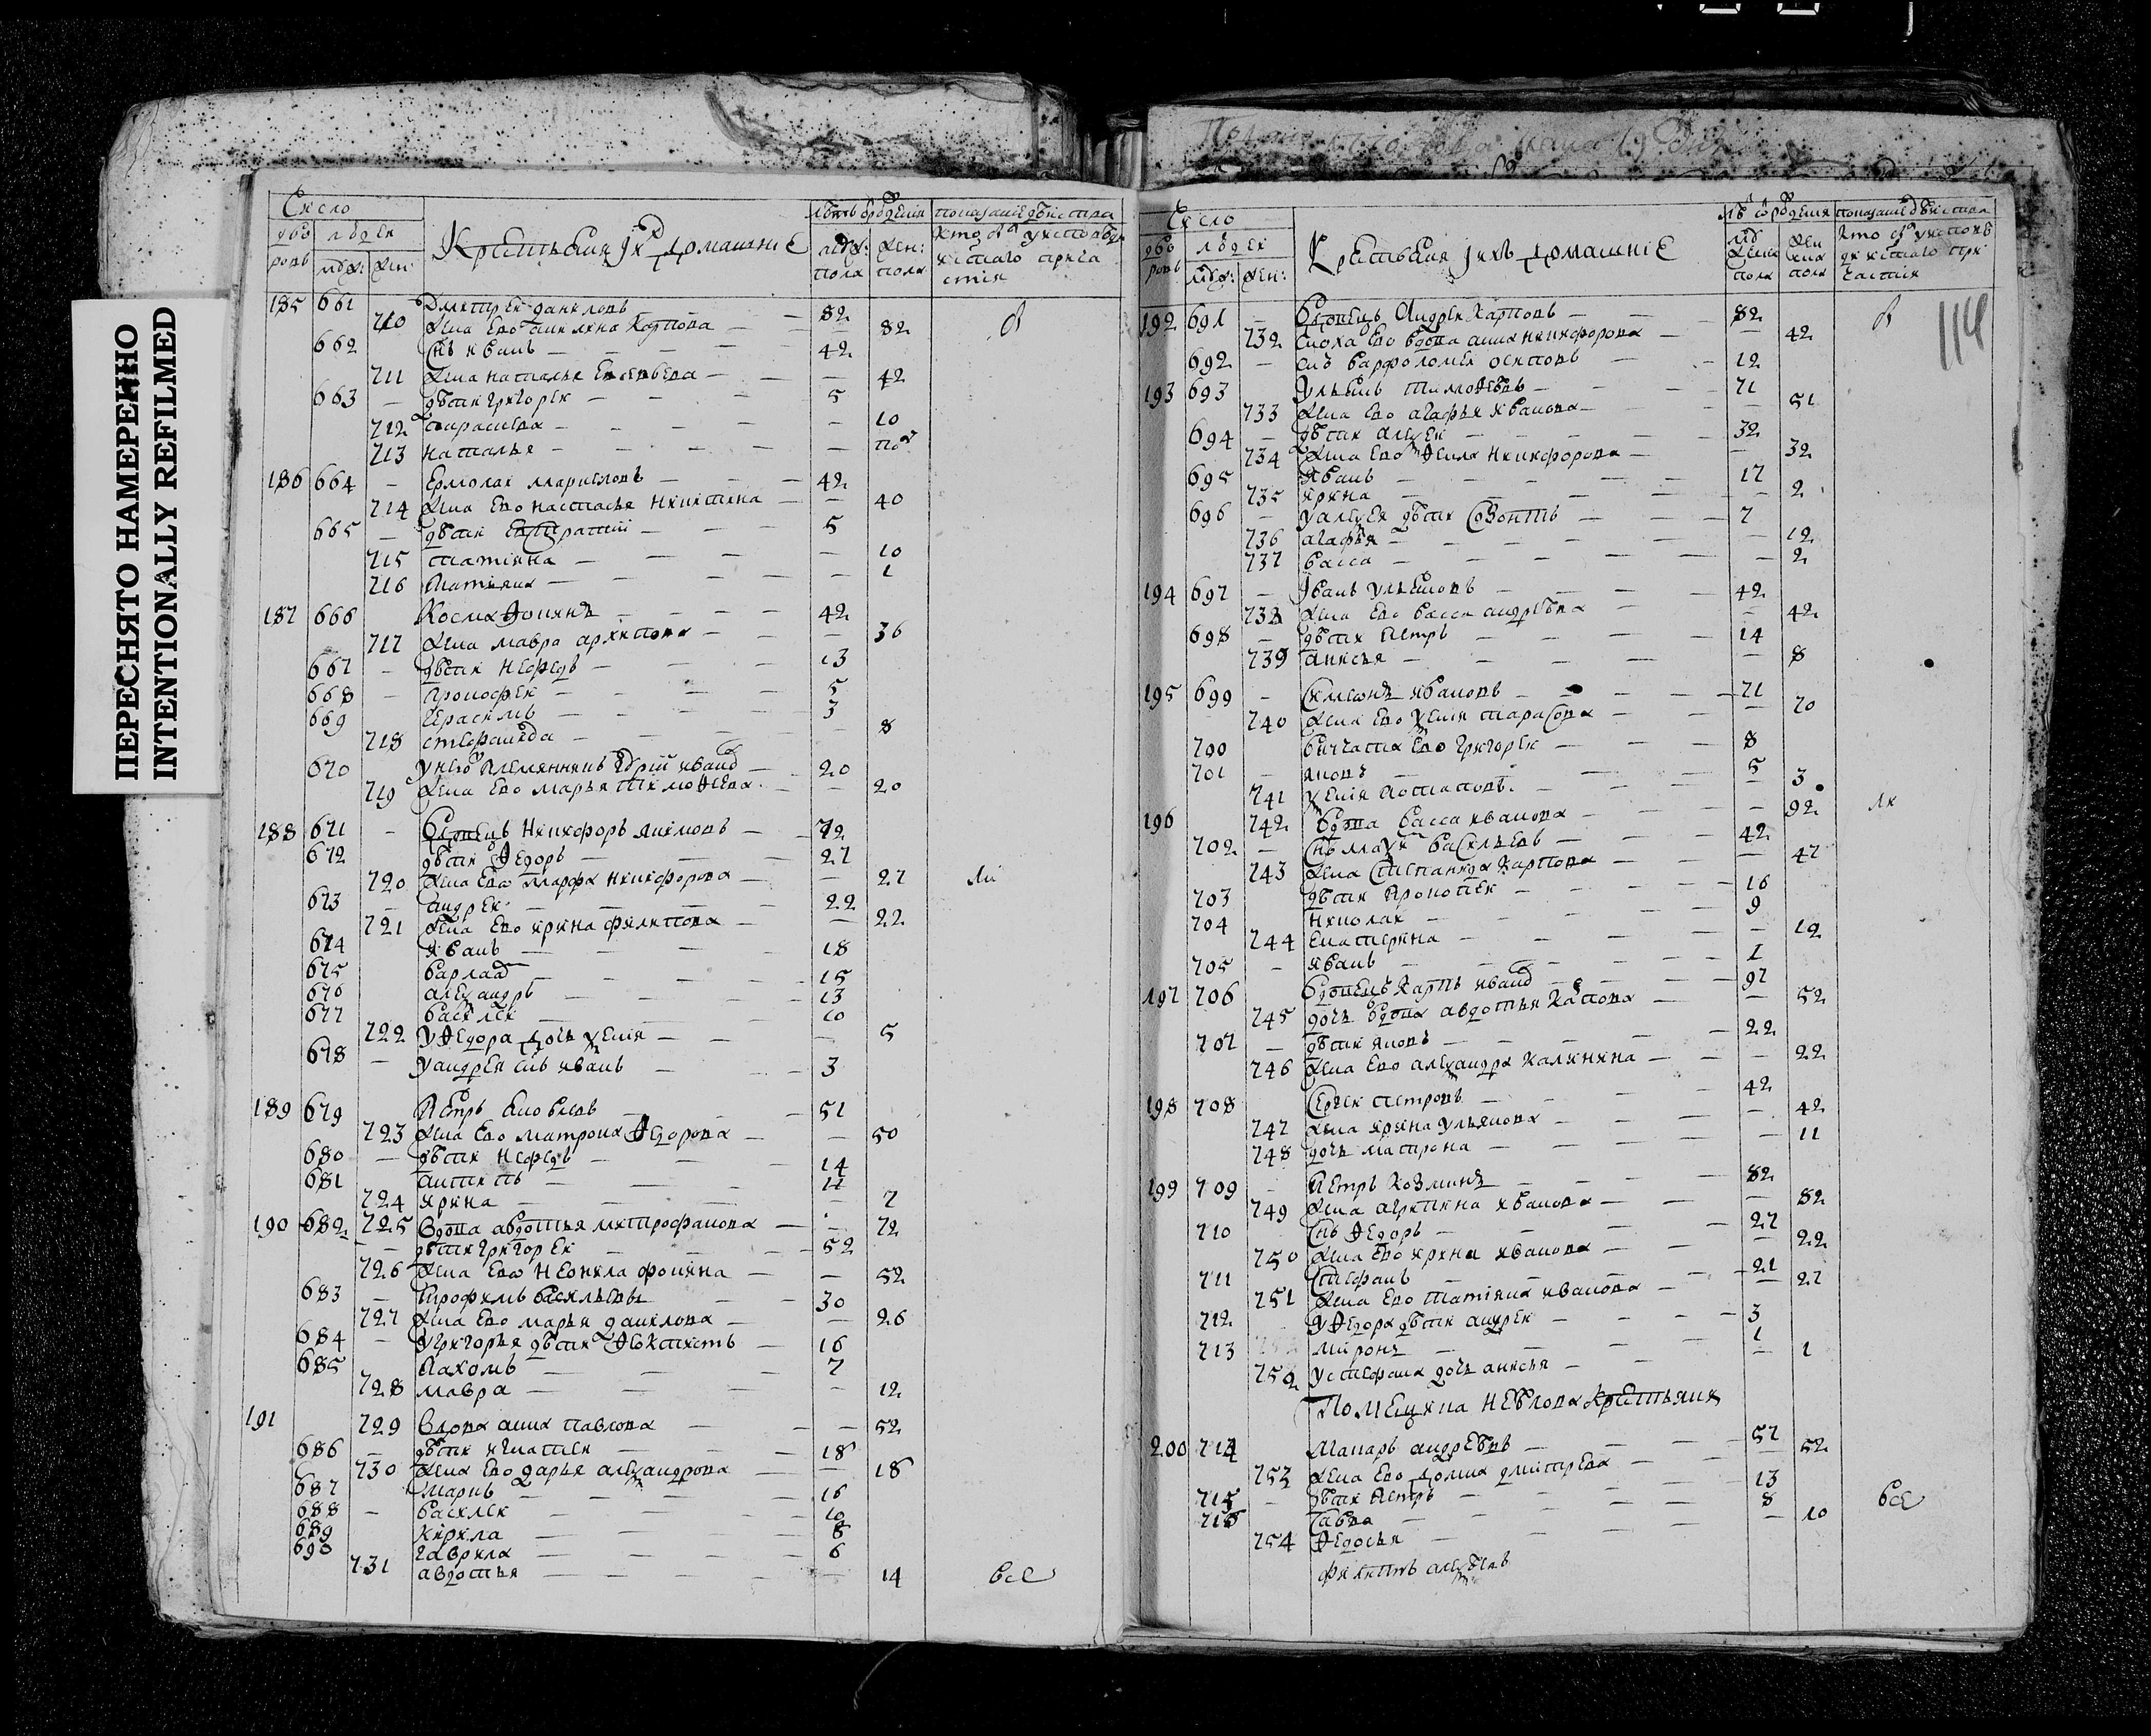 ПЕРЕСНЯТО НАМЕРЕННО
INTENTIONALLY REFILMED
Число
людеи
Крестьяня их домашние
185 661 Дмитреи данилов 82
710 жена ево акилина Карпова 82
662 Снъ иванъ 42
711 жена наталья 42
663 дѣти григореи 5
712 парасковя 10
713 наталья
186 664 Ермолаи маркелов 42
714 жена ево настасья никитина 40
665 дѣти Евстратии 5
715 татияна 10
716 татияна 1
187 666 Косма Фокинъ 42
717 жена мавра архипова 36
667 дѣти нефедъ 13
668 прокофеи 5
669 герасимъ 3
718 стефанида 8
670 у него племянникъ иванов 20
719 жена ево марья тимофеева 20
188 671 вдовецъ Никифоръ якимовъ 72
672 дѣти Федоръ 27
720 жена ево марфа никифорова 27
673 андреи 22
721 жена ево ирина филипова 22
674 иванъ 18
675 варлам 15
676 александръ 13
677 василеи 10
722 у Федора дочь ксения 5
678 у андрея снъ иванъ 3
189 679 Петръ яковлевъ 51
723 жена ево матрона Федорова 50
680 дѣти нефедъ 14
681 антипъ 11
724 ирина 7
190 682 725 вдова авдотья митрофанова 72
дѣти григореи 52
726 жена ево неонила фокина 52
683 трофимъ васильевъ 30
727 жена ево марья данилова 26
684 у григорья дѣти Феоктистъ 16
685 пахомъ 7
728 мавра 12
191 729 вдова анна павлова 52
686 дѣти игнатеи 18
730 жена ево дарья александрова 18
687 маркъ 16
688 василеи 10
689 кирила 8
690 гаврила 6
731 авдотья 14 все
Число
людеи
Крестьяня ихъ домашние
114
192 691 вдовецъ Андреи Карповъ 82
732 сноха ево вдова анна никифорова 42
692 снъ варфоломеи осиповъ 12
193 693 Ульянъ тимофеевъ 71
733 жена ево агафья иванова 51
694 дѣти алексеи 32
734 жена ево Фекла никифорова 32
695 иванъ 17
735 ирина 2
696 у алексея дѣти созонтъ 7
736 агафья 12
737 васса 2
194 697 иванъ ульяновъ 42
738 жена ево васса андрѣева 42
698 дѣти Петръ 14
739 анисья 8
195 699 симеонъ ивановъ 71
740 жена ево ксения тарасова 70
700 внучата ево григореи 8
701 яковъ 5
741 ксения потапова 3
196 742 вдова васса иванова 92
702 снъ василевъ 42
743 жена степанида карпова 47
703 дѣти прокопеи 16
704 николаи 9
744 екатерина 12
705 иванъ 1
197 706 вдовецъ Карпъ иванов 97
745 дочь вдова авдотья карпова 52
707 дѣти яковъ 22
746 жена ево александра калинина 22
198 708 Сергеи петровъ 42
747 жена ирина ульянова 42
748 дочь матрона 11
199 709 Петръ Козминъ 82
749 жена агрипина иванова 82
710 снъ Федоръ 27
750 жена ево ирина иванова 22
711 стефанъ 21
751 жена ево татияна иванова 27
712 у Федора дѣти андреи 3
713 миронъ 1
752 у стефана дочь анисья 1
Помещика Неѣлова крестьяня
200 714 Макаръ андрѣевъ 57
753 жена ево домна дмитрева 52
715 дѣти Петръ 13
716 савва 8
754 Федосья 10
все
филипъ алексѣевъ